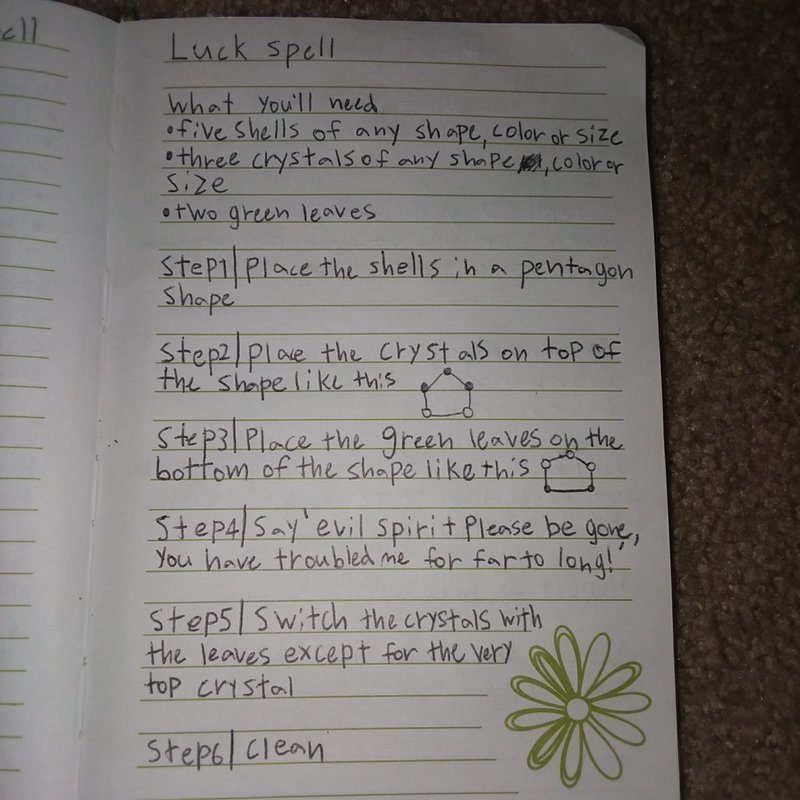 ell
Luck spell
What you'll need
•five shells of any shape, color or size
•three crystals of any shape, color or
size
•two green leaves
Step1|Place the shells in a pentagon
Shape
Step2|Place the crystals on top of
the shape like this
Step3|Place the green leaves on the
bottom of the shape like this
Step4|Say 'evil spirit Please be gone,
You have troubled me for far to long!'
Step5|Switch the crystals with
the leaves except for the very
top crystal
Step6|Clean